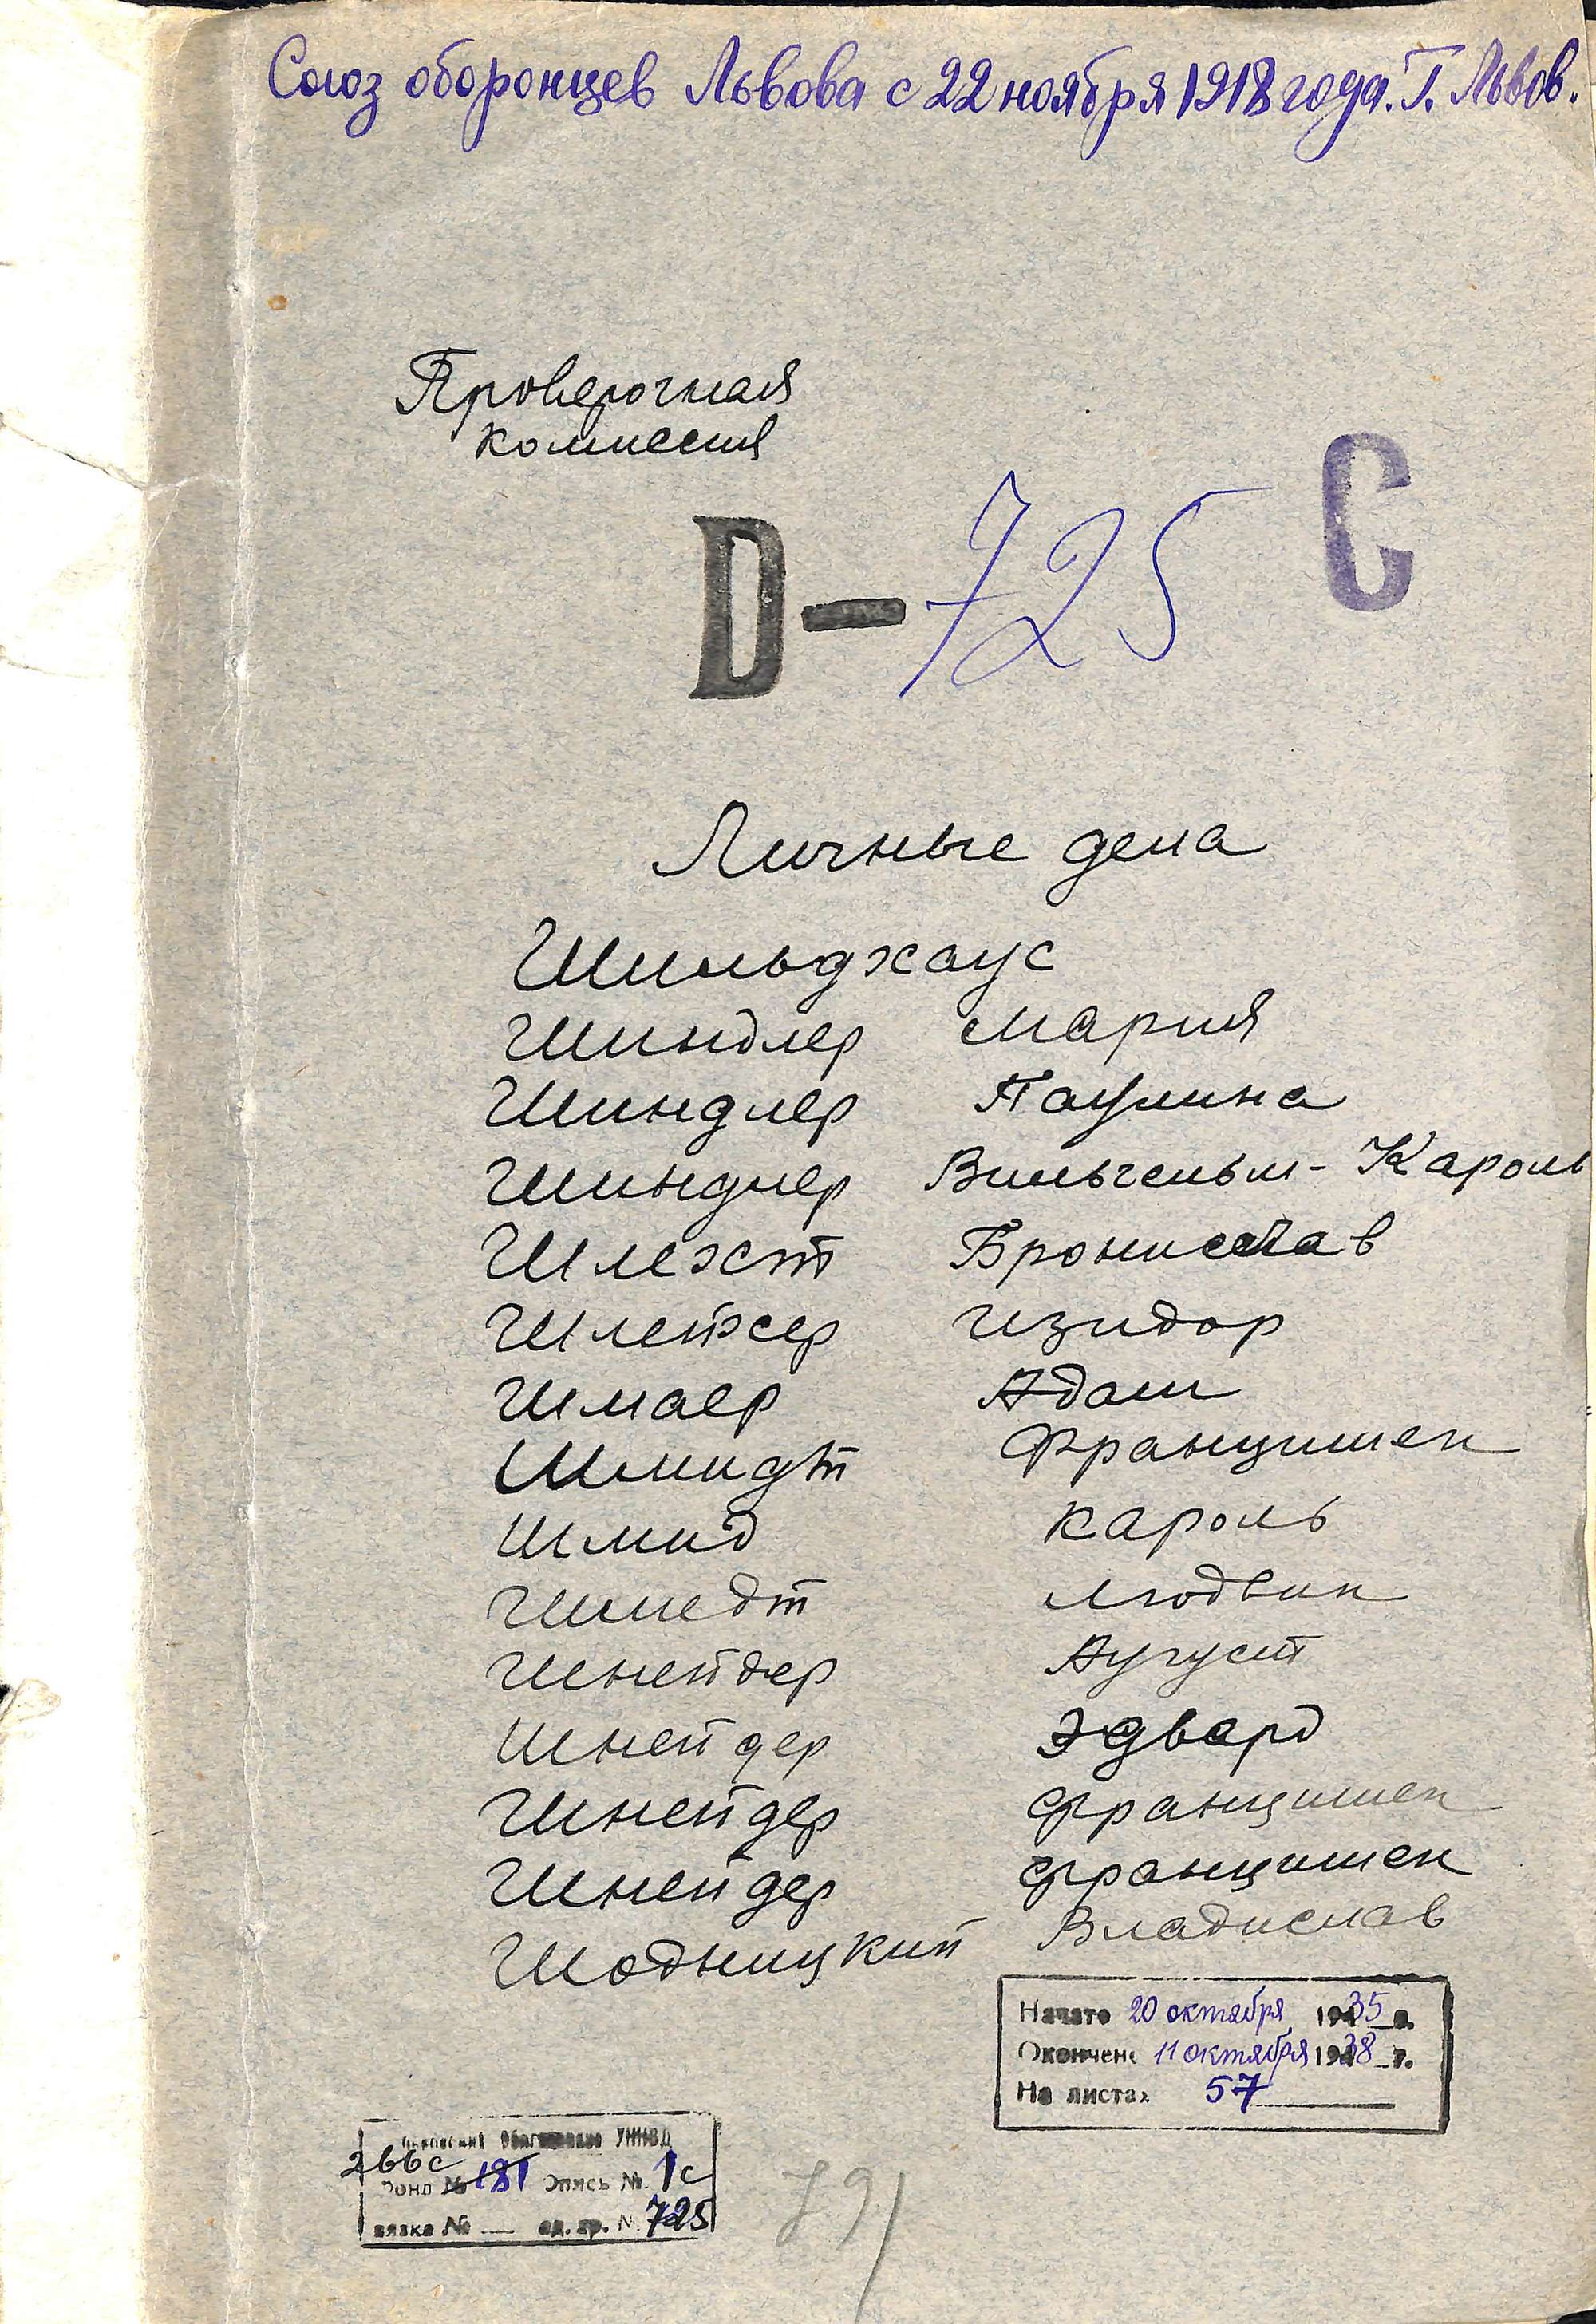 Союз оборонцев Львова с 22 ноября 1918 года. Г. Львов.
Проверочная
комиссия
D-725 C
Личные дела
Шильдхаус
Шиндлер Мария
Шиндлер Паулина
Шиндлер Вильгельм-Кароль
Шлехт Бронислав
Шлейхер Изидор
Шмаер Адам
Шмидт Францишек
Шмид Кароль
Шмедт Людвик
Шнейдер Аугуст
Шнейдер Эдвард
Шнейдер Францишек
Шнейдер Францишек
Шодницкий Владислав
Начато 20 октября 1935 г.
Окончено 11 октября 1938 г.
На листах 57
УНКВД
266с
Фонд № 181 Опись № 1с
вязка № — ед. хр. № 725
791